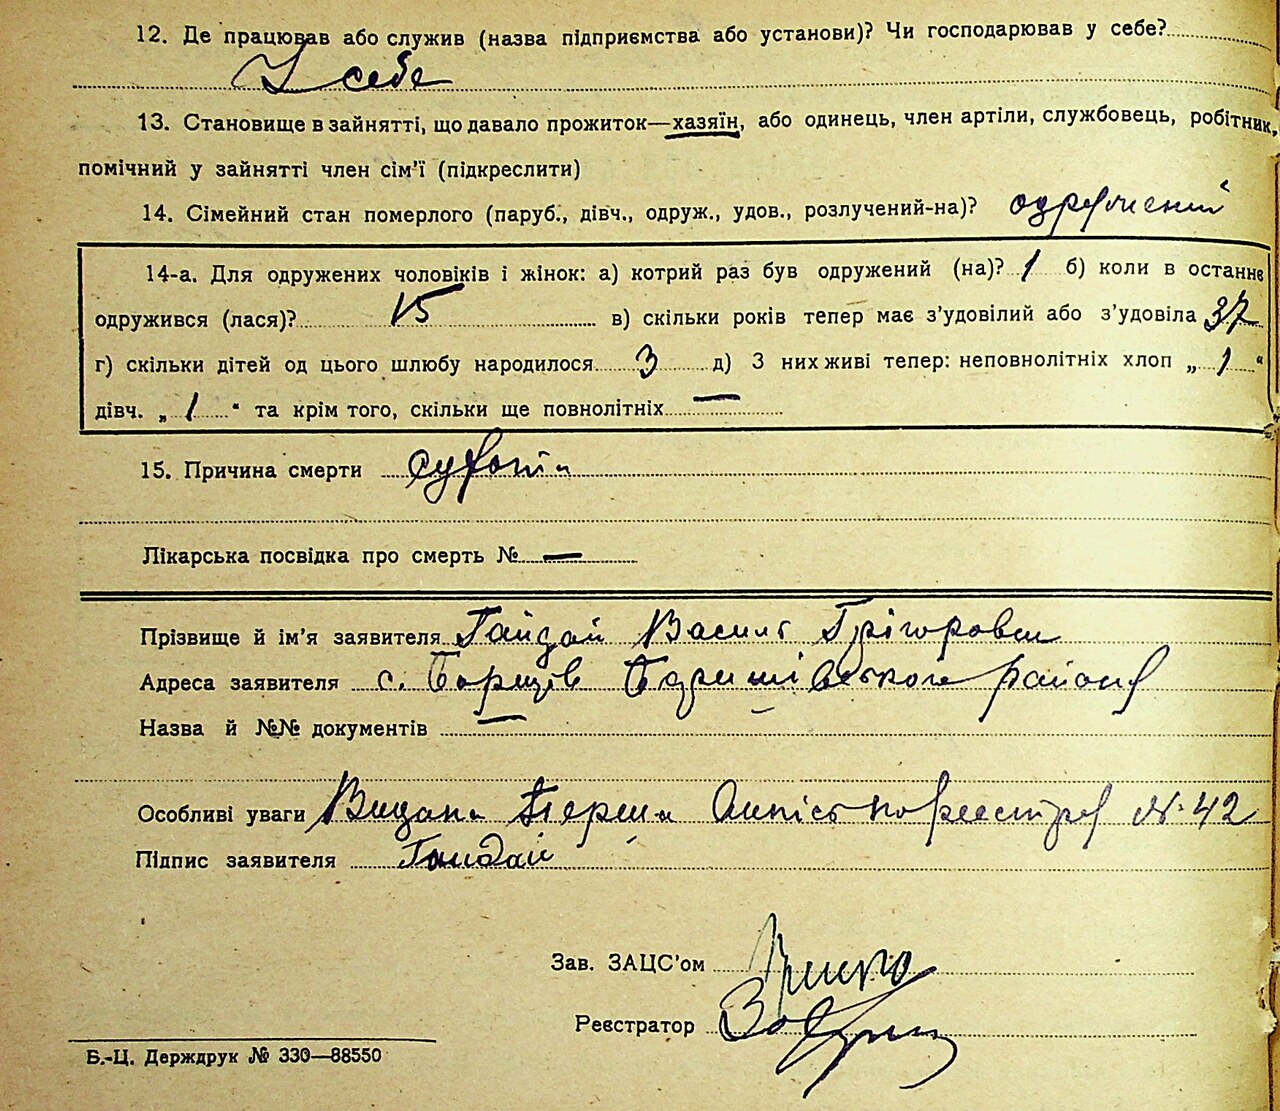 12. Де працював або служив (назва підприємства або установи)? Чи господарював у себе?
У себе
13. Становище в зайнятті, що давало прожиток—хазяїн, або одинець, член артіли, службовець, робітник,
помічний у зайнятті член сім'ї (підкреслити)
14. Сімейний стан померлого (паруб., дівч., одруж., удов., розлучений-на)? одружений
14-а. Для одружених чоловіків і жінок: а) котрий раз був одружений (на)? 1 б) коли в останнє
одружився (лася)? 15 в) скільки років тепер має з'удовілий або з'удовіла 37
г) скільки дітей од цього шлюбу народилося 3 д) З них живі тепер: неповнолітніх хлоп „ 1 "
дівч. „ 1 " та крім того, скільки ще повнолітніх —
15. Причина смерти
Лікарська посвідка про смерть № —
Прізвище й ім'я заявителя Гайдай Василь Грігорович
Адреса заявителя с. Борщів район
Назва й №№ документів —
Особливі уваги Видана перша по реестру № 42
Підпис заявителя Гайдай
Зав. ЗАЦС'ом
Реєстратор
Б.-Ц. Держдрук № 330—88550